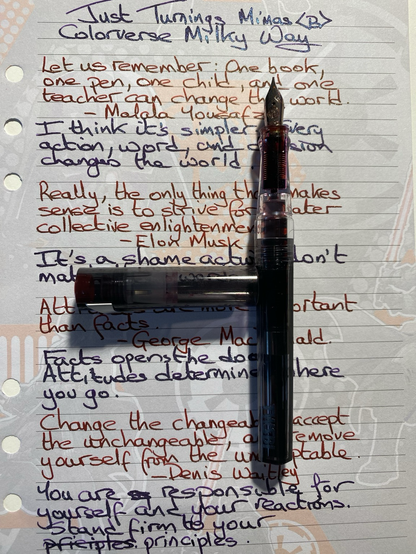 Just Turnings Mimas <B>
Colorverse Milky Way
Let us remember: One book,
one pen, one child, and one
teacher can change the world.
- Malala Yousafz
I think it's simpler every
action, word, and
changes the world
Really, the only thing tha makes
sense is to strive for ater
collective enlightenmen
- Elon Musk
It's a shame actu don't
mat
Atti are more portant
than facts.
- George Mac ald.
Facts opens the doo
Attitudes determine here
you go.
Change the changeab accept
the unchangeable, a remove
yourself from the un ptable.
- Denis Waitley
You are responsible for
yourself and your reactions.
Stand firm to your
priciples principles.